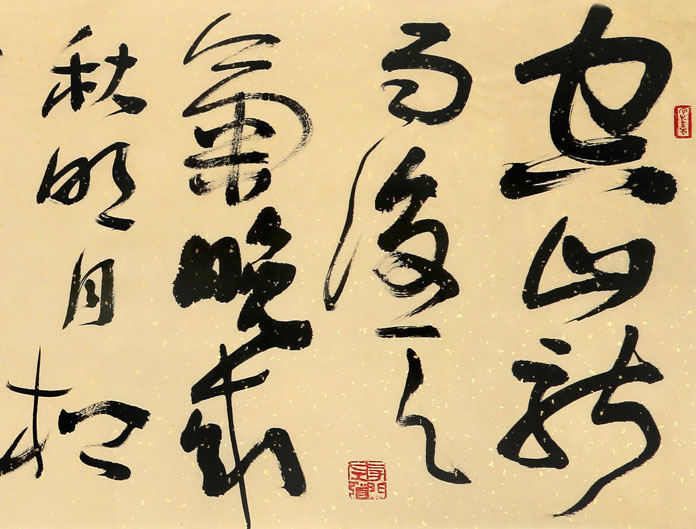 空山新
雨後天
氣晚來
秋明月松